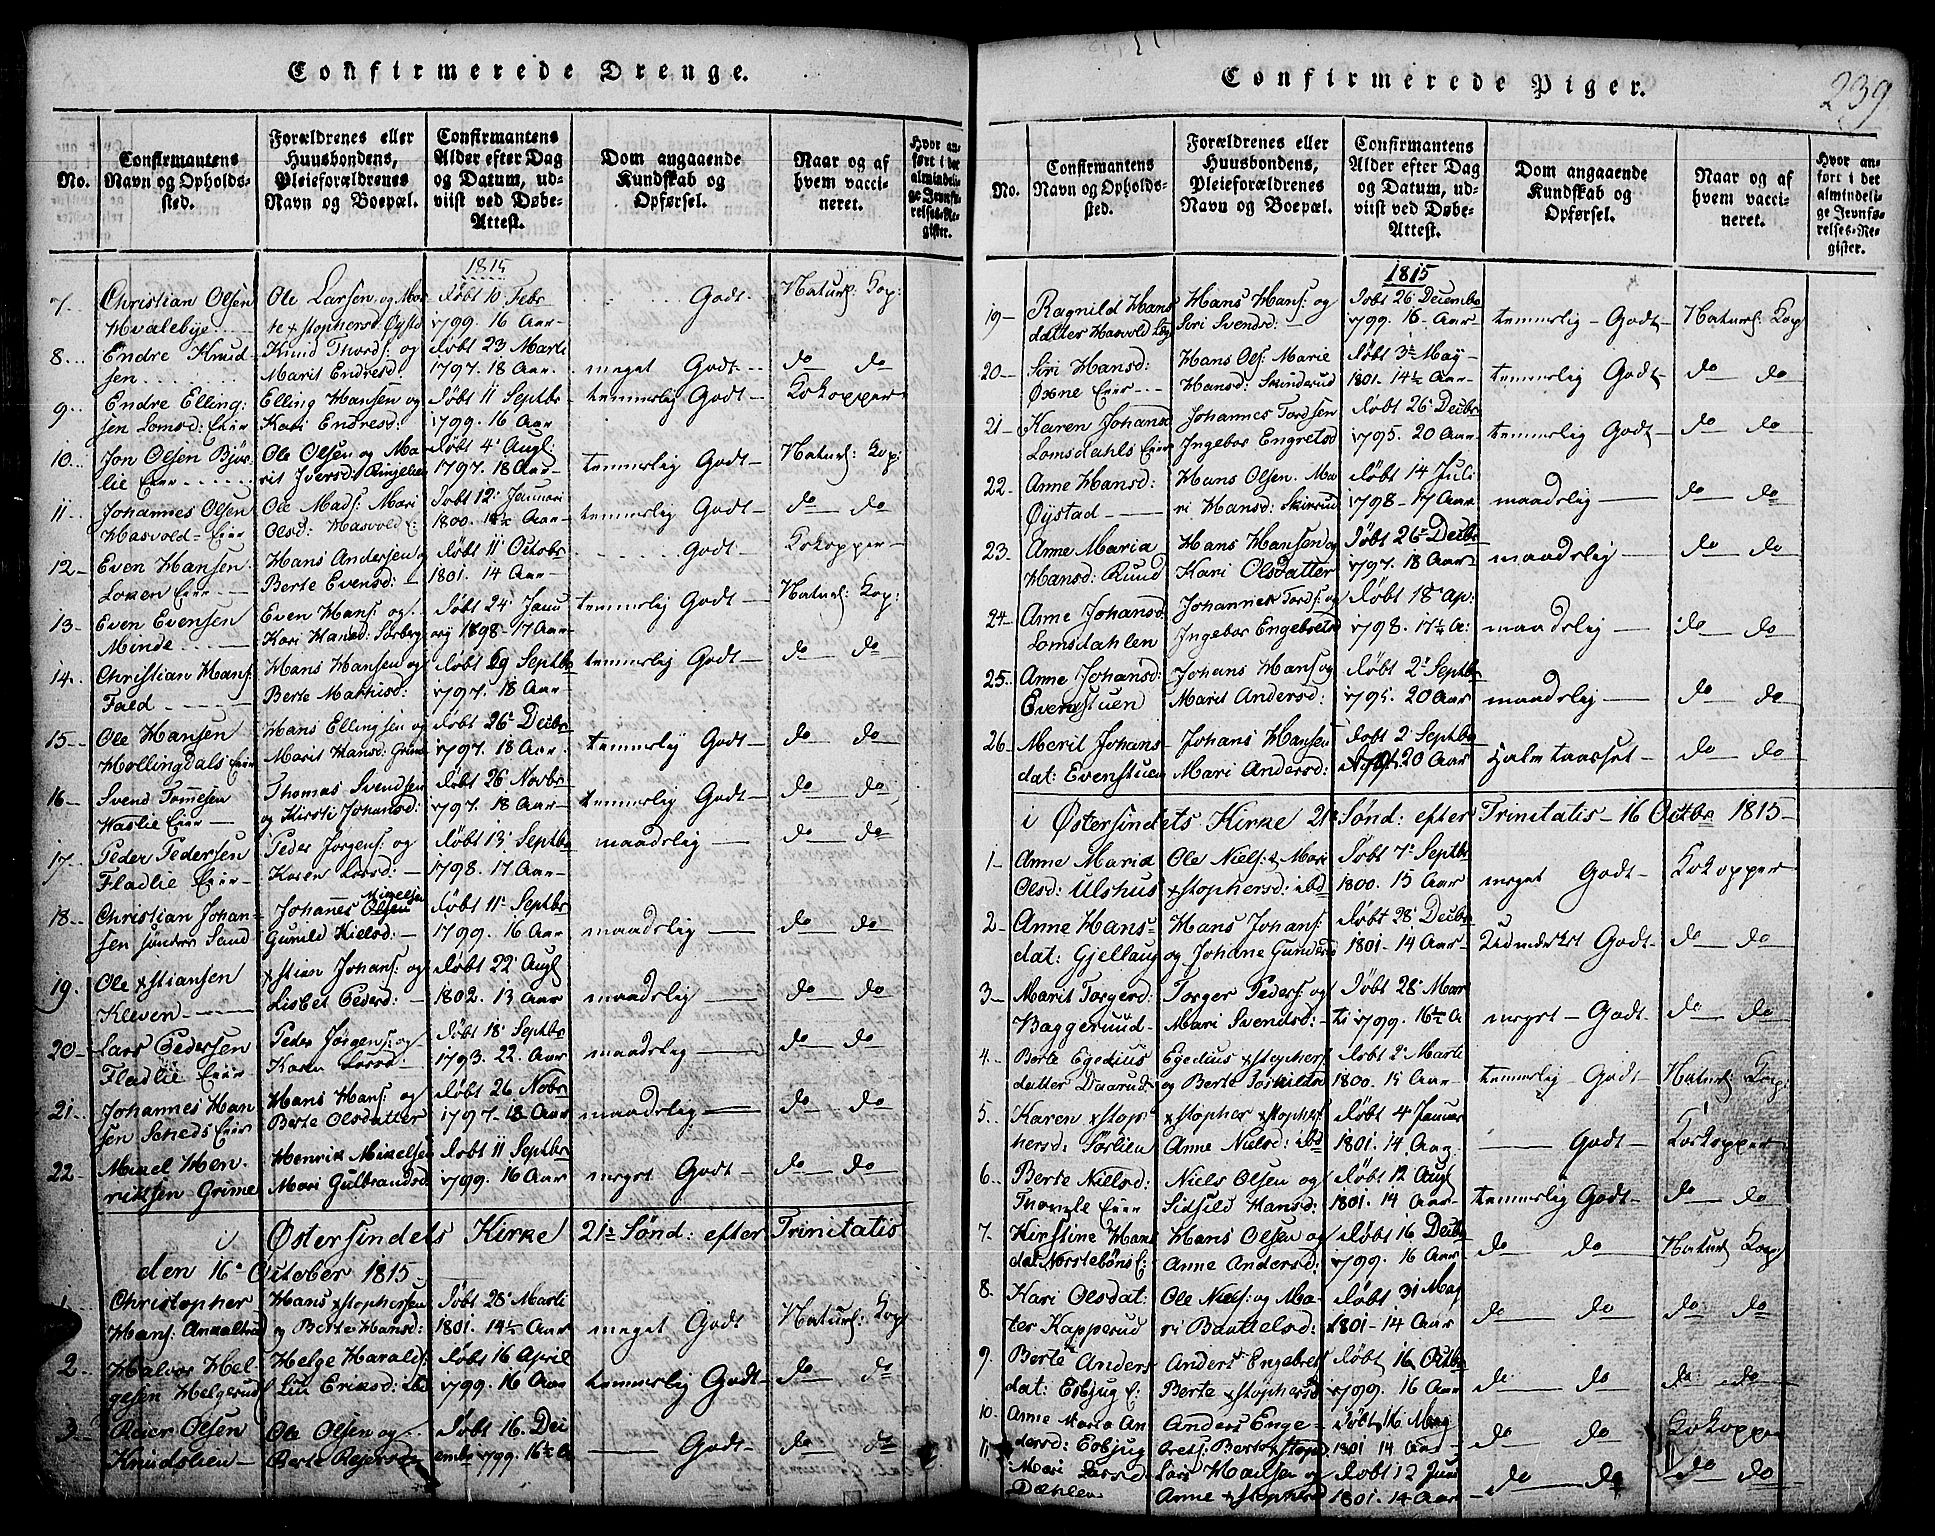 Confirmerede Drenge.
No.
Confirmantens Navn og Opholds-sted.
Forældrenes eller Huusbondens, Pleieforældrenes Navn og Boepæl.
Confirmantens Alder efter Dag og Datum, ud-viist ved Døbe-Attest.
Dom angaaende Kundskab og Opførsel.
Naar og af hvem vacci-neret.
Hvor an-ført i det almindeli-ge Jevnfø-relses-Re-gister.
1815
7. Christian Olsen Hvalebye Ole Larsen og Mar-te xstophersd: Øyst døbt 10 Febr 1799. 16 Aar Godt Naturl: Kop:
8. Endre Knud-sen Knud Thords: og Marit Endresd: døbt 23 Marti 1797. 18 Aar meget Godt do do
9. Endre Elling:sen Lomsd: Eier Elling Hansen og Kari Endresd: døbt 11 Septbr 1799. 16 Aar temmelig Godt Kokopper
10. Jon Olsen Bjør-lie Eier Ole Olsen og Ma-rit Iversd: døbt 4 Augl 1797. 18 Aar temmelig Godt Naturl: Kop:
11. Johannes Olsen Hasvold Eier Ole Mads: Mari Olsd: Hasvold E: døbt 12 Januari 1800. Aar temmelig Godt do do
12. Even Hansen Loken Eier Hans Andersen og Berte Evensd: døbt 11 Octobr 1801. 14 Aar Godt Kokopper
13. Even Evensen Minde Even Hans: og Kari Hansd: Sørberg døbt 24 Janu ary 1798 17 Aar temmelig Godt Naturl: Kop:
14. Christian Hans: Fald Hans Hansen og Berte Mathisd: døbt 29 Septbr 1797. 18 Aar temmelig Godt do do
15. Ole Hansen Hollingdals Eier Hans Ellingsen og Marit Hansd: døbt 26 Decbr 1797. 18 Aar. temmelig Godt do do
16. Svend Tomesen Haslie Eier Thomas Svendsen og Kirsti Johansd: døbt 26 Novbr 1797. 18 Aar temmelig Godt do do
17. Peder Pedersen Fladlie Eier Peder Jørgens: og Karen Larsd: døbt 13 Septbr 1798. 17 Aar maadelig do do
18. Christian Johan-sen søndre Sand Johannes Mikelsen Olsen Gunild Kielsd: døbt 11 Septbr 1799. 16 Aar maadelig do do
19. Ole xstiansen Kleven xstian Johans: og Lisbet Pedersd: døbt 22 Augl 1802. 13 Aar maadelig do do
20. Lars Pedersen Fladlie Eier Peder Jørgens: og Karen Larsd: døbt 18 Septbr 1793. 22. Aar maadelig do do
21. Johannes Han sen Scheds Eier Hans Hans: og Berte Olsdatter døbt 26 Nobr 1797. 18 Aar maadelig do do
22. Mikel Hen-riksen Grime Henrik Mikelsen Mari Gulbrandsd døbt 11 Septbr 1799. 16 Aar meget Godt do do
i Østersindets Kirke 21de Sønd: efter Trinitatis
den 16 October 1815
1. Christopher Hans: Hans xstophersen og Berte Hansd: døbt 28 Marti 1801. 14½ Aar meget Godt Naturl: Kop:
2. Halvor Hel-gesen Helgerud Helge Haralds: Liv Eriksd: ibd døbt 16 April 1799. 16 Aar temmelig Godt do do
3. Reier Olsen Knudslien Ole Olsen og Berte Reiersd: døbt 16. Dec embr 1799. 16½ A Godt do do
Confirmerede Piger.
239
No.
Confirmantens Navn og Opholds-sted.
Forældrenes eller Huusbondens, Pleieforældrenes Navn og Boepæl.
Confirmantens Alder efter Dag og Datum, ud-viist ved Døbe-Attest.
Dom angaaende Kundskab og Opførsel.
Naar og af hvem vacci-neret.
Hvor an-ført i det almindeli-ge Jevnfø-relses-Re-gister.
1815
19 Ragnild Hans datter Hasvold Hans Hans: og Siri Svendsd: døbt 26 Decembr 1799. 16 Aar temmelig Godt Naturl: Kop
20 Siri Hansd: Øxne Eier Hans Ols: Marie Hansd: Skinderud døbt 3 May 1801. 14½ Aar temmelig Godt do do
21 Karen Johansd Lomsdahls Eier Johannes Tordsen Ingebor Engretsd døbt 26 Decbr 1795. 20 Aar temmelig Godt do do
22. Anne Hansd: Øystad Hans Olsen. Ma-ri Hansd: Skinrud døbt 14 Juli 1798 17 Aar maadelig do do
23. Anne Maria Hansd: Rund Hans Hansen og Kari Olsdatter døbt 26 Decbr 1797. 18 Aar maadelig do do
24 Anne Johansd Lomsdahlen Johannes Tords: og Ingebor Engebretsd døbt 18 Ap: 1798. 17½ A: maadelig do do
25. Anne Johansd: Evenstuen Johans Hans og Marit Andersd: døbt 2 Septbr 1795. 20 Aar maadelig do do
26 Merit Johans-dat: Evenstuen Johans Hansen Mari Andersd: døbt 2 Septbr 20 Aar do do
i Østersindets Kirke 21de Sønd: efter Trinitatis 16 Octbr 1815
1 Anne Maria Olsd: Ulshus Ole Niels: & Mari xstophersd: ibd døbt 7 Septbr 1800. 15 Aar meget Godt Kokopper
2 Anne Hans-dat: Gjellaug Hans Johans: og Johane Gunders døbt 28 Decbr 1801. 14 Aar Udmerket Godt do do
3 Marit Torgersd: Baggerud Torger Peders: og Mari Svendsd: døbt 28 Mar ti 1799. 16½ A meget Godt do do
4. Berte Egedius datter Daarud Egedius xstophers og Berte Toskildsd døbt 2 Marti 1800. 15 Aar temmelig Godt Naturl: Kop:
5. Karen xstop hersd: Sørlien xstopher xstophers Anne Nielsd: ibd døbt 4 Januar 1801. 14 Aar Godt Kokopper
6. Berte Nielsd: Eier Niels Olsen og Sidsild Hansd: døbt 12 Augl 1801. 14 Aar temmelig Godt do do
7. Kirstine Hans dat Norstebøns E: Hans Olsen og Anne Andersd: døbt 16 Decbr 1799. 16 Aar do do Naturl Kop
8. Kari Olsdat-ter Kapperud Ole Niels: og Ma-ri Bottelsd: døbt 31 May 1801 14 Aar do do do do
9. Berte Anders dat: Esbjug E: Anders Engebrets Berte xstophersd døbt 16 Octbr 1799. 16 Aar do do do do
10. Anne Maria An dersd: Esbjug Anders Enge-brets: Berte xstop døbt 16 May 1801 14 Aar do do Kokopper
11 Mari Larsd: Dæhlen Lars Hansen og Anne xstophersd døbt 12 Juni 1801. 14 Aar do do do do